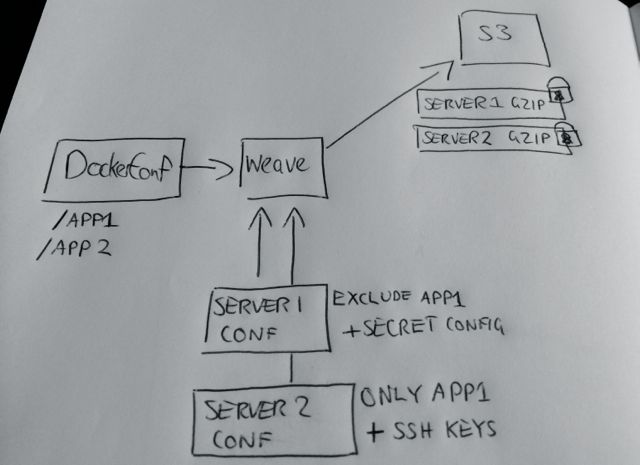 S3
SERVER1 GZIP
SERVER2 GZIP
DockerConf
Weave
/APP1
/APP2
SERVER1
CONF
EXCLUDE APP1
+SECRET CONFIG
SERVER2
CONF
ONLY APP1
+ SSH KEYS